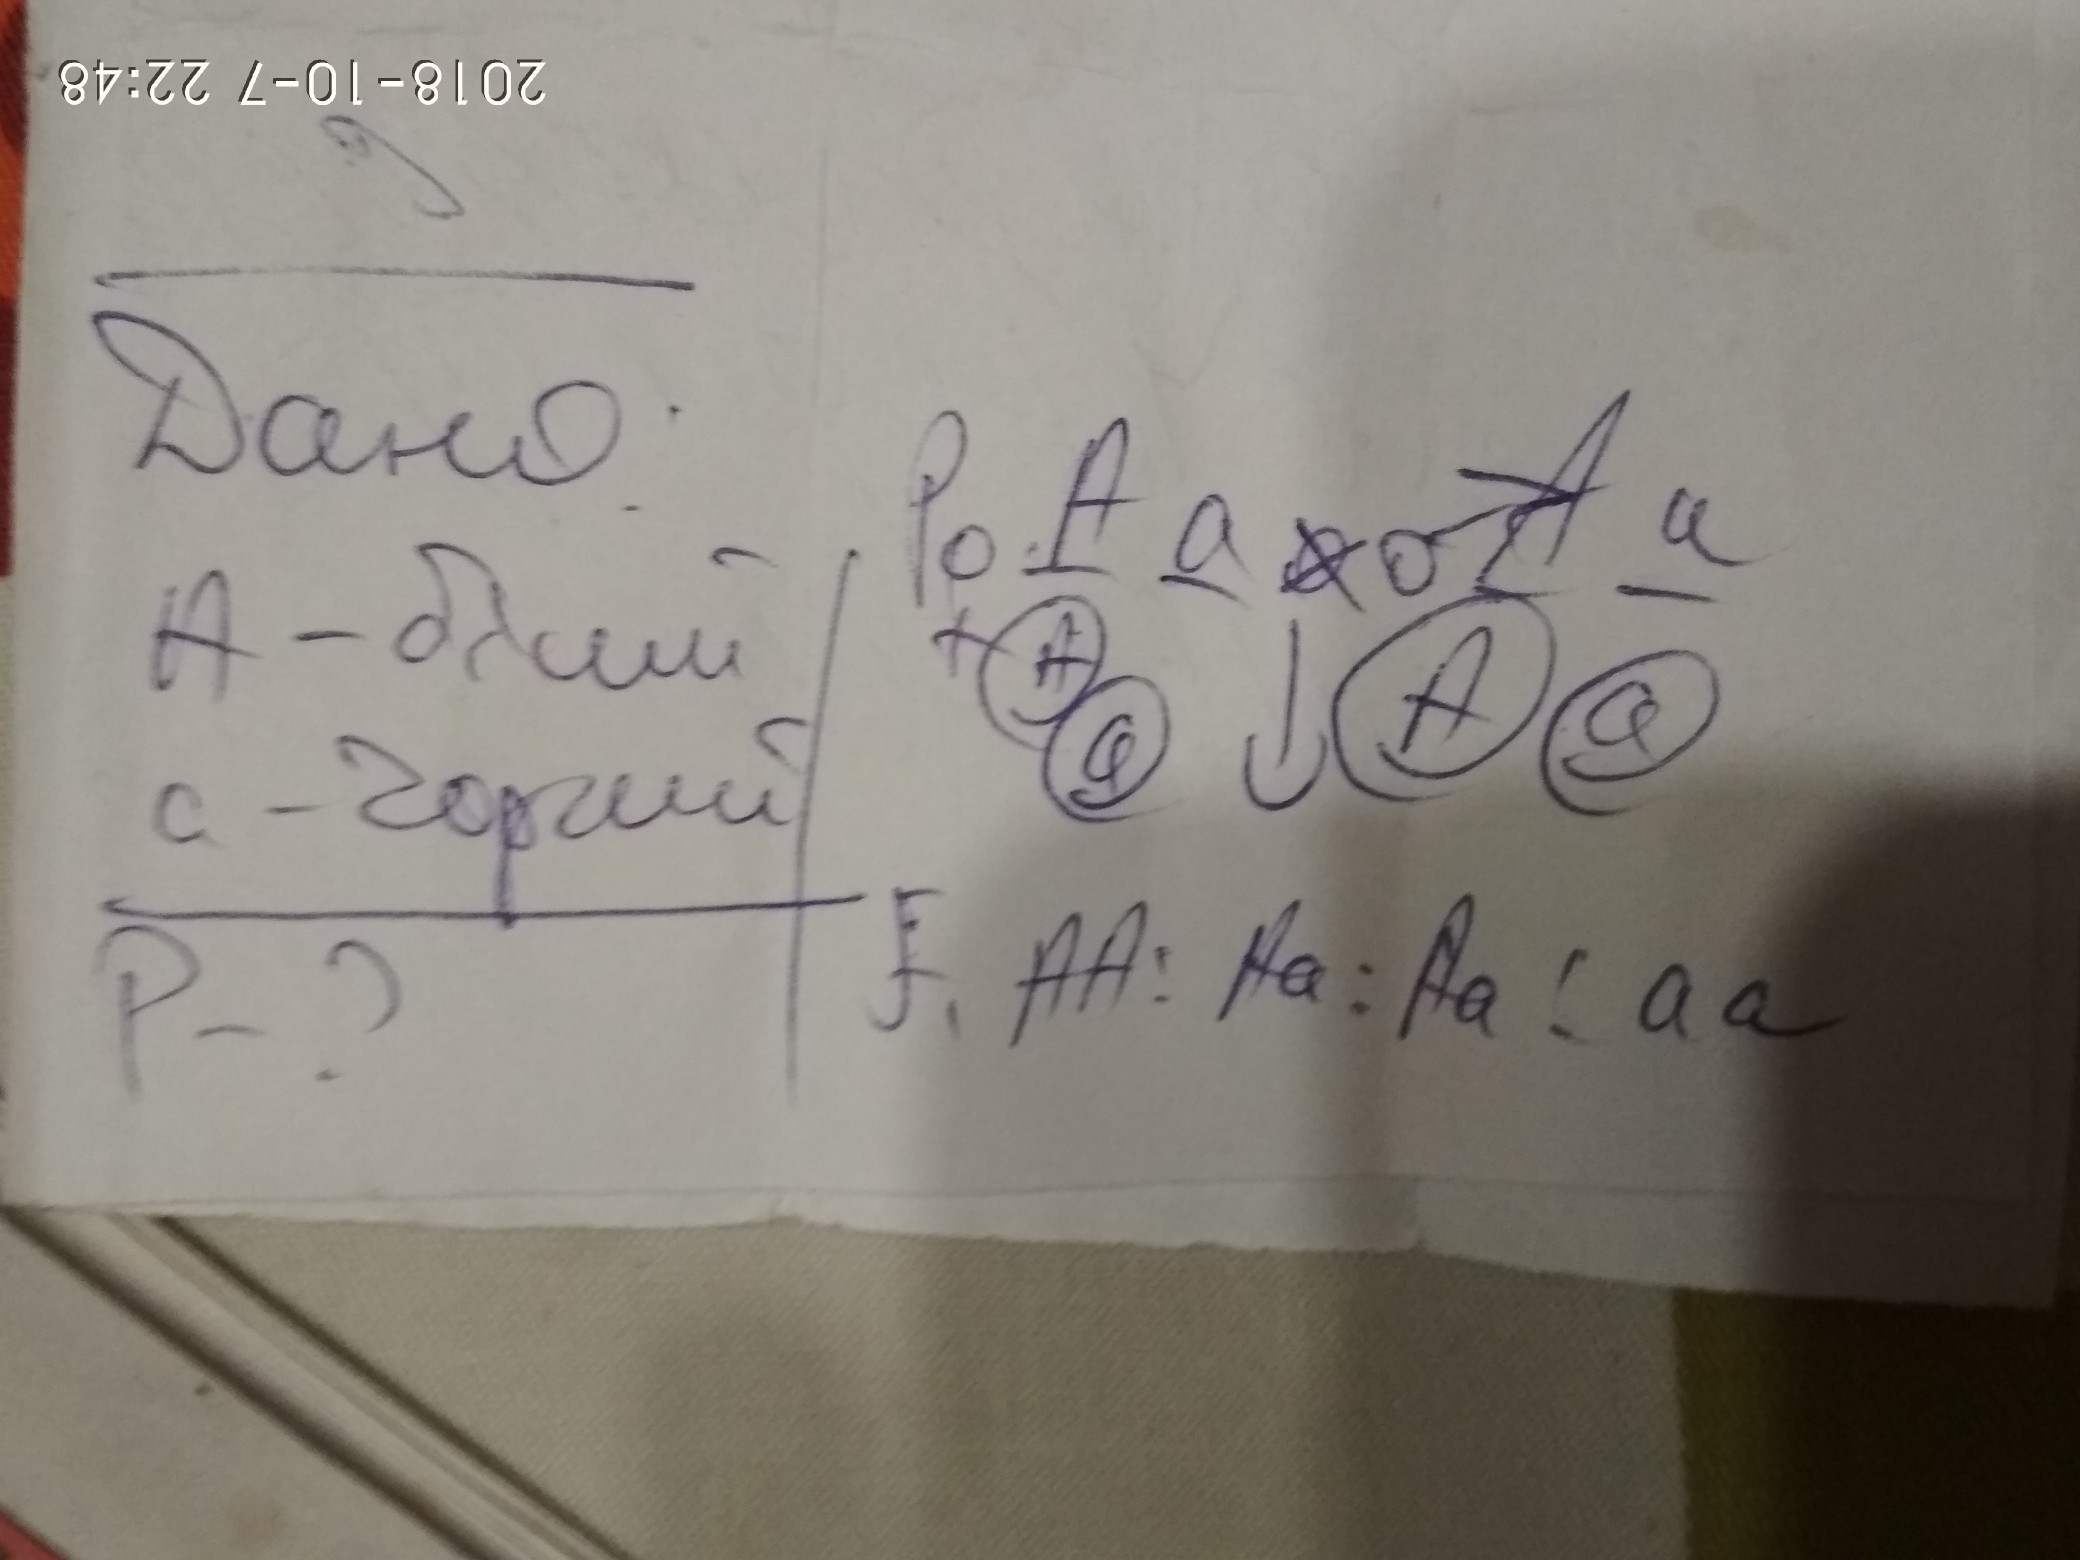 2018-10-7 22:48
Дано:
А - білий
а - чорний
P - ?
P ♀ Aa x ♂ Aa
A a ↓ A a
F₁ AA : Aa : Aa : aa